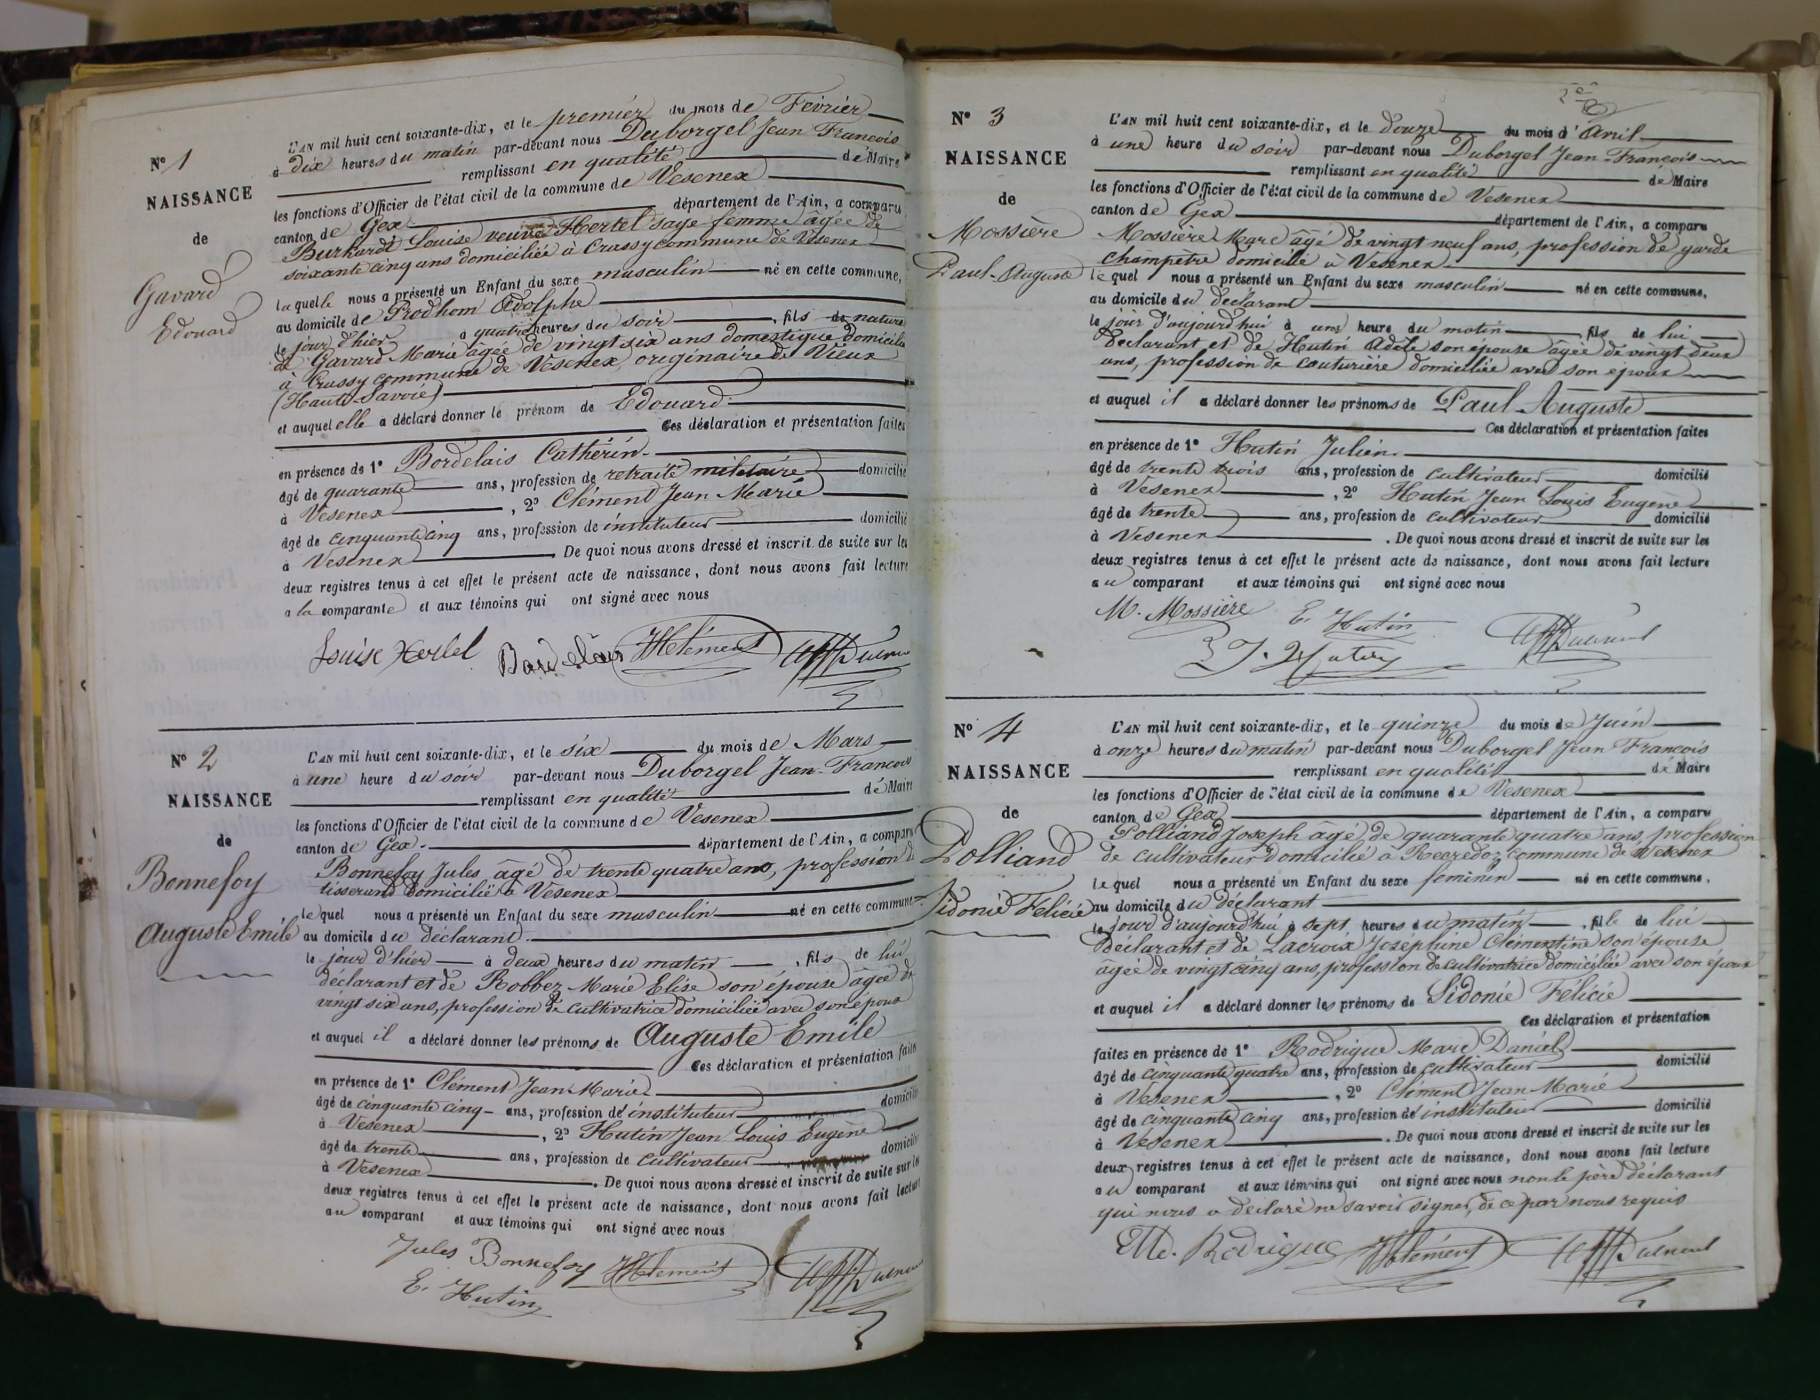 N° 1
NAISSANCE
de
Gavard
Edouard
L'AN mil huit cent soixante-dix, et le premier du mois de Février
à dix heures du matin par-devant nous Duborgel Jean François
remplissant en qualité de Maire
les fonctions d'Officier de l'état civil de la commune de Vesenex
canton de Gex département de l'Ain, a comparu
Burhardt Louise veuve Hertel sage femme âgée de
soixante cinq ans domiciliée à Crassy commune de Vesenex
laquelle nous a présenté un Enfant du sexe masculin né en cette commune,
au domicile de Prodhom Adolphe
le jour d'hier à quatre heures du soir, fils de nature
de Gavard Marie âgée de vingt six ans domestique domicilée
à Crassy commune de Vesenex, originaire de Vieux
(Haute-Savoie)
et auquel elle a déclaré donner le prénom de Edouard
Ces déclaration et présentation faites
en présence de 1° Bordelais Cathérin
âgé de quarante ans, profession de retraité militaire domicilié
à Vesenex, 2° Clément Jean Marie
âgé de cinquante cinq ans, profession de instituteur domicilié
à Vesenex. De quoi nous avons dressé et inscrit de suite sur les
deux registres tenus à cet effet le présent acte de naissance, dont nous avons fait lecture
a la comparante et aux témoins qui ont signé avec nous
Louise Hertel Bordelais JM Clément
N° 2
NAISSANCE
de
Bonnefoy
Auguste Emile
L'AN mil huit cent soixante-dix, et le six du mois de Mars
à une heure du soir par-devant nous Duborgel Jean-François
remplissant en qualité de Maire
les fonctions d'Officier de l'état civil de la commune de Vesenex
canton de Gex département de l'Ain, a comparu
Bonnefoy Jules âgé de trente quatre ans, profession de
tisserand domicilié à Vesenex
lequel nous a présenté un Enfant du sexe masculin né en cette commune
au domicile du déclarant
le jour d'hier à deux heures du matin, fils de lui
déclarant et de Robbez Marie Elise son épouse âgée de
vingt six ans, profession de cultivatrice domiciliée avec son époux
et auquel il a déclaré donner les prénoms de Auguste Emile
Ces déclaration et présentation faites
en présence de 1° Clément Jean Marie
âgé de cinquante cinq ans, profession de instituteur domicilié
à Vesenex, 2° Hutin Jean Louis Eugène
âgé de trente ans, profession de cultivateur domicilié
à Vesenex. De quoi nous avons dressé et inscrit de suite sur les
deux registres tenus à cet effet le présent acte de naissance, dont nous avons fait lecture
au comparant et aux témoins qui ont signé avec nous
Jules Bonnefoy JM Clément
E. Hutin
N° 3
NAISSANCE
de
Mossière
Paul-Auguste
L'AN mil huit cent soixante-dix, et le douze du mois d'Avril
à une heure du soir par-devant nous Duborgel Jean-François
remplissant en qualité de Maire
les fonctions d'Officier de l'état civil de la commune de Vesenex
canton de Gex département de l'Ain, a comparu
Mossière Marc âgé de vingt neuf ans, profession de garde
champêtre domicilié à Vesenex
lequel nous a présenté un Enfant du sexe masculin né en cette commune,
au domicile du déclarant
le jour d'aujourd'hui à une heure du matin, fils de lui
déclarant et de Hutin Adèle son épouse âgée de vingt deux
ans, profession de couturière domiciliée avec son époux
et auquel il a déclaré donner les prénoms de Paul Auguste
Ces déclaration et présentation faites
en présence de 1° Hutin Julien
âgé de trente trois ans, profession de cultivateur domicilié
à Vesenex, 2° Hutin Jean Louis Eugène
âgé de trente ans, profession de cultivateur domicilié
à Vesenex. De quoi nous avons dressé et inscrit de suite sur les
deux registres tenus à cet effet le présent acte de naissance, dont nous avons fait lecture
au comparant et aux témoins qui ont signé avec nous
M. Mossière E. Hutin
J. Hutin
N° 4
NAISSANCE
de
Polliand
Sidonie Félicie
L'AN mil huit cent soixante-dix, et le quinze du mois de Juin
à onze heures du matin par-devant nous Duborgel Jean François
remplissant en qualité de Maire
les fonctions d'Officier de l'état civil de la commune de Vesenex
canton de Gex département de l'Ain, a comparu
Polliand Joseph âgé de quarante quatre ans, profession
de cultivateur domicilié à commune de Vesenex
lequel nous a présenté un Enfant du sexe féminin né en cette commune,
au domicile du déclarant
le jour d'aujourd'hui à sept heures du matin, fille de lui
déclarant et de Lacroix Joséphine Clémentine son épouse
âgée de vingt cinq ans, profession de cultivatrice domiciliée avec son époux
et auquel il a déclaré donner les prénoms de Sidonie Félicie
Ces déclaration et présentation
faites en présence de 1° Rodrigue Marc Daniel
âgé de cinquante quatre ans, profession de cultivateur domicilié
à Vesenex, 2° Clément Jean Marie
âgé de cinquante cinq ans, profession de instituteur domicilié
à Vesenex. De quoi nous avons dressé et inscrit de suite sur les
deux registres tenus à cet effet le présent acte de naissance, dont nous avons fait lecture
au comparant et aux témoins qui ont signé avec nous non le père déclarant
qui nous a déclaré ne savoir signer, de ce par nous requis
Md. Rodrigue JM Clément